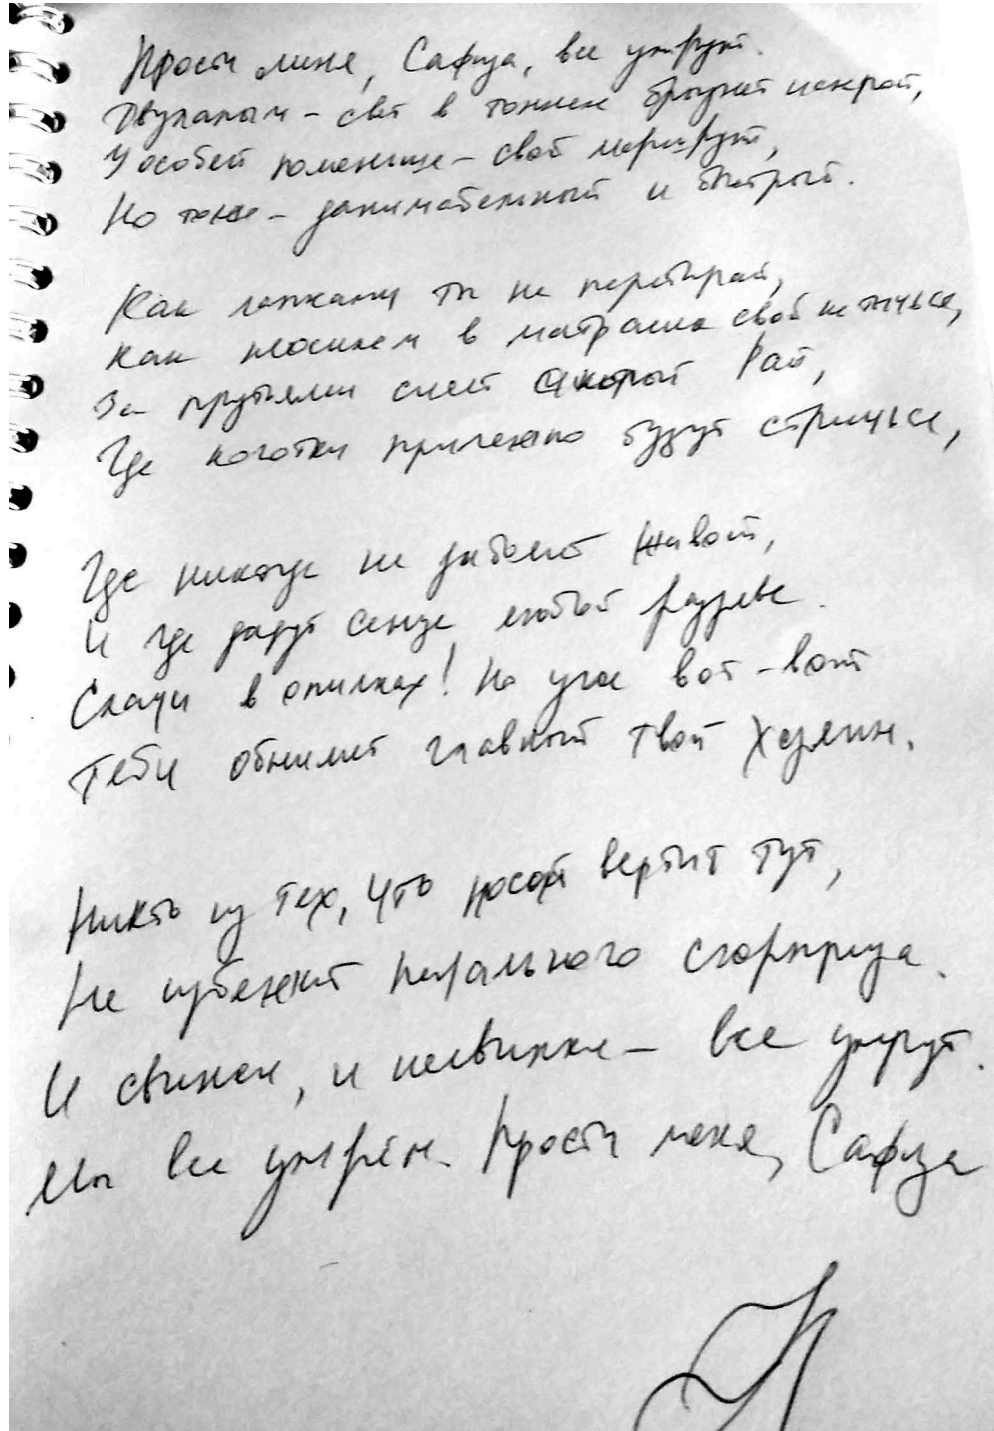 Прости меня, Сафуа, все умрут.
Двупалым – свет в тоннеле брызнет искрой,
У особей поменьше – свой маршрут,
Но тоже – занимательный и быстрый.
Как лапками ты не перебирай,
Как носиком в матрасик свой не тычься,
За прутьями сияет скорый Рай,
Где коготки прилежно будут стричься,
Где никогда не заболит живот,
И где дадут сенца любой разлив.
Скачи в опилках! Но уже вот-вот
Тебя обнимет главный твой Хозяин.
Никто из тех, что носом вертит тут,
Не избежит печального сюрприза.
И свинки, и несвинки – все умрут.
Мы все умрём. Прости меня, Сафуа